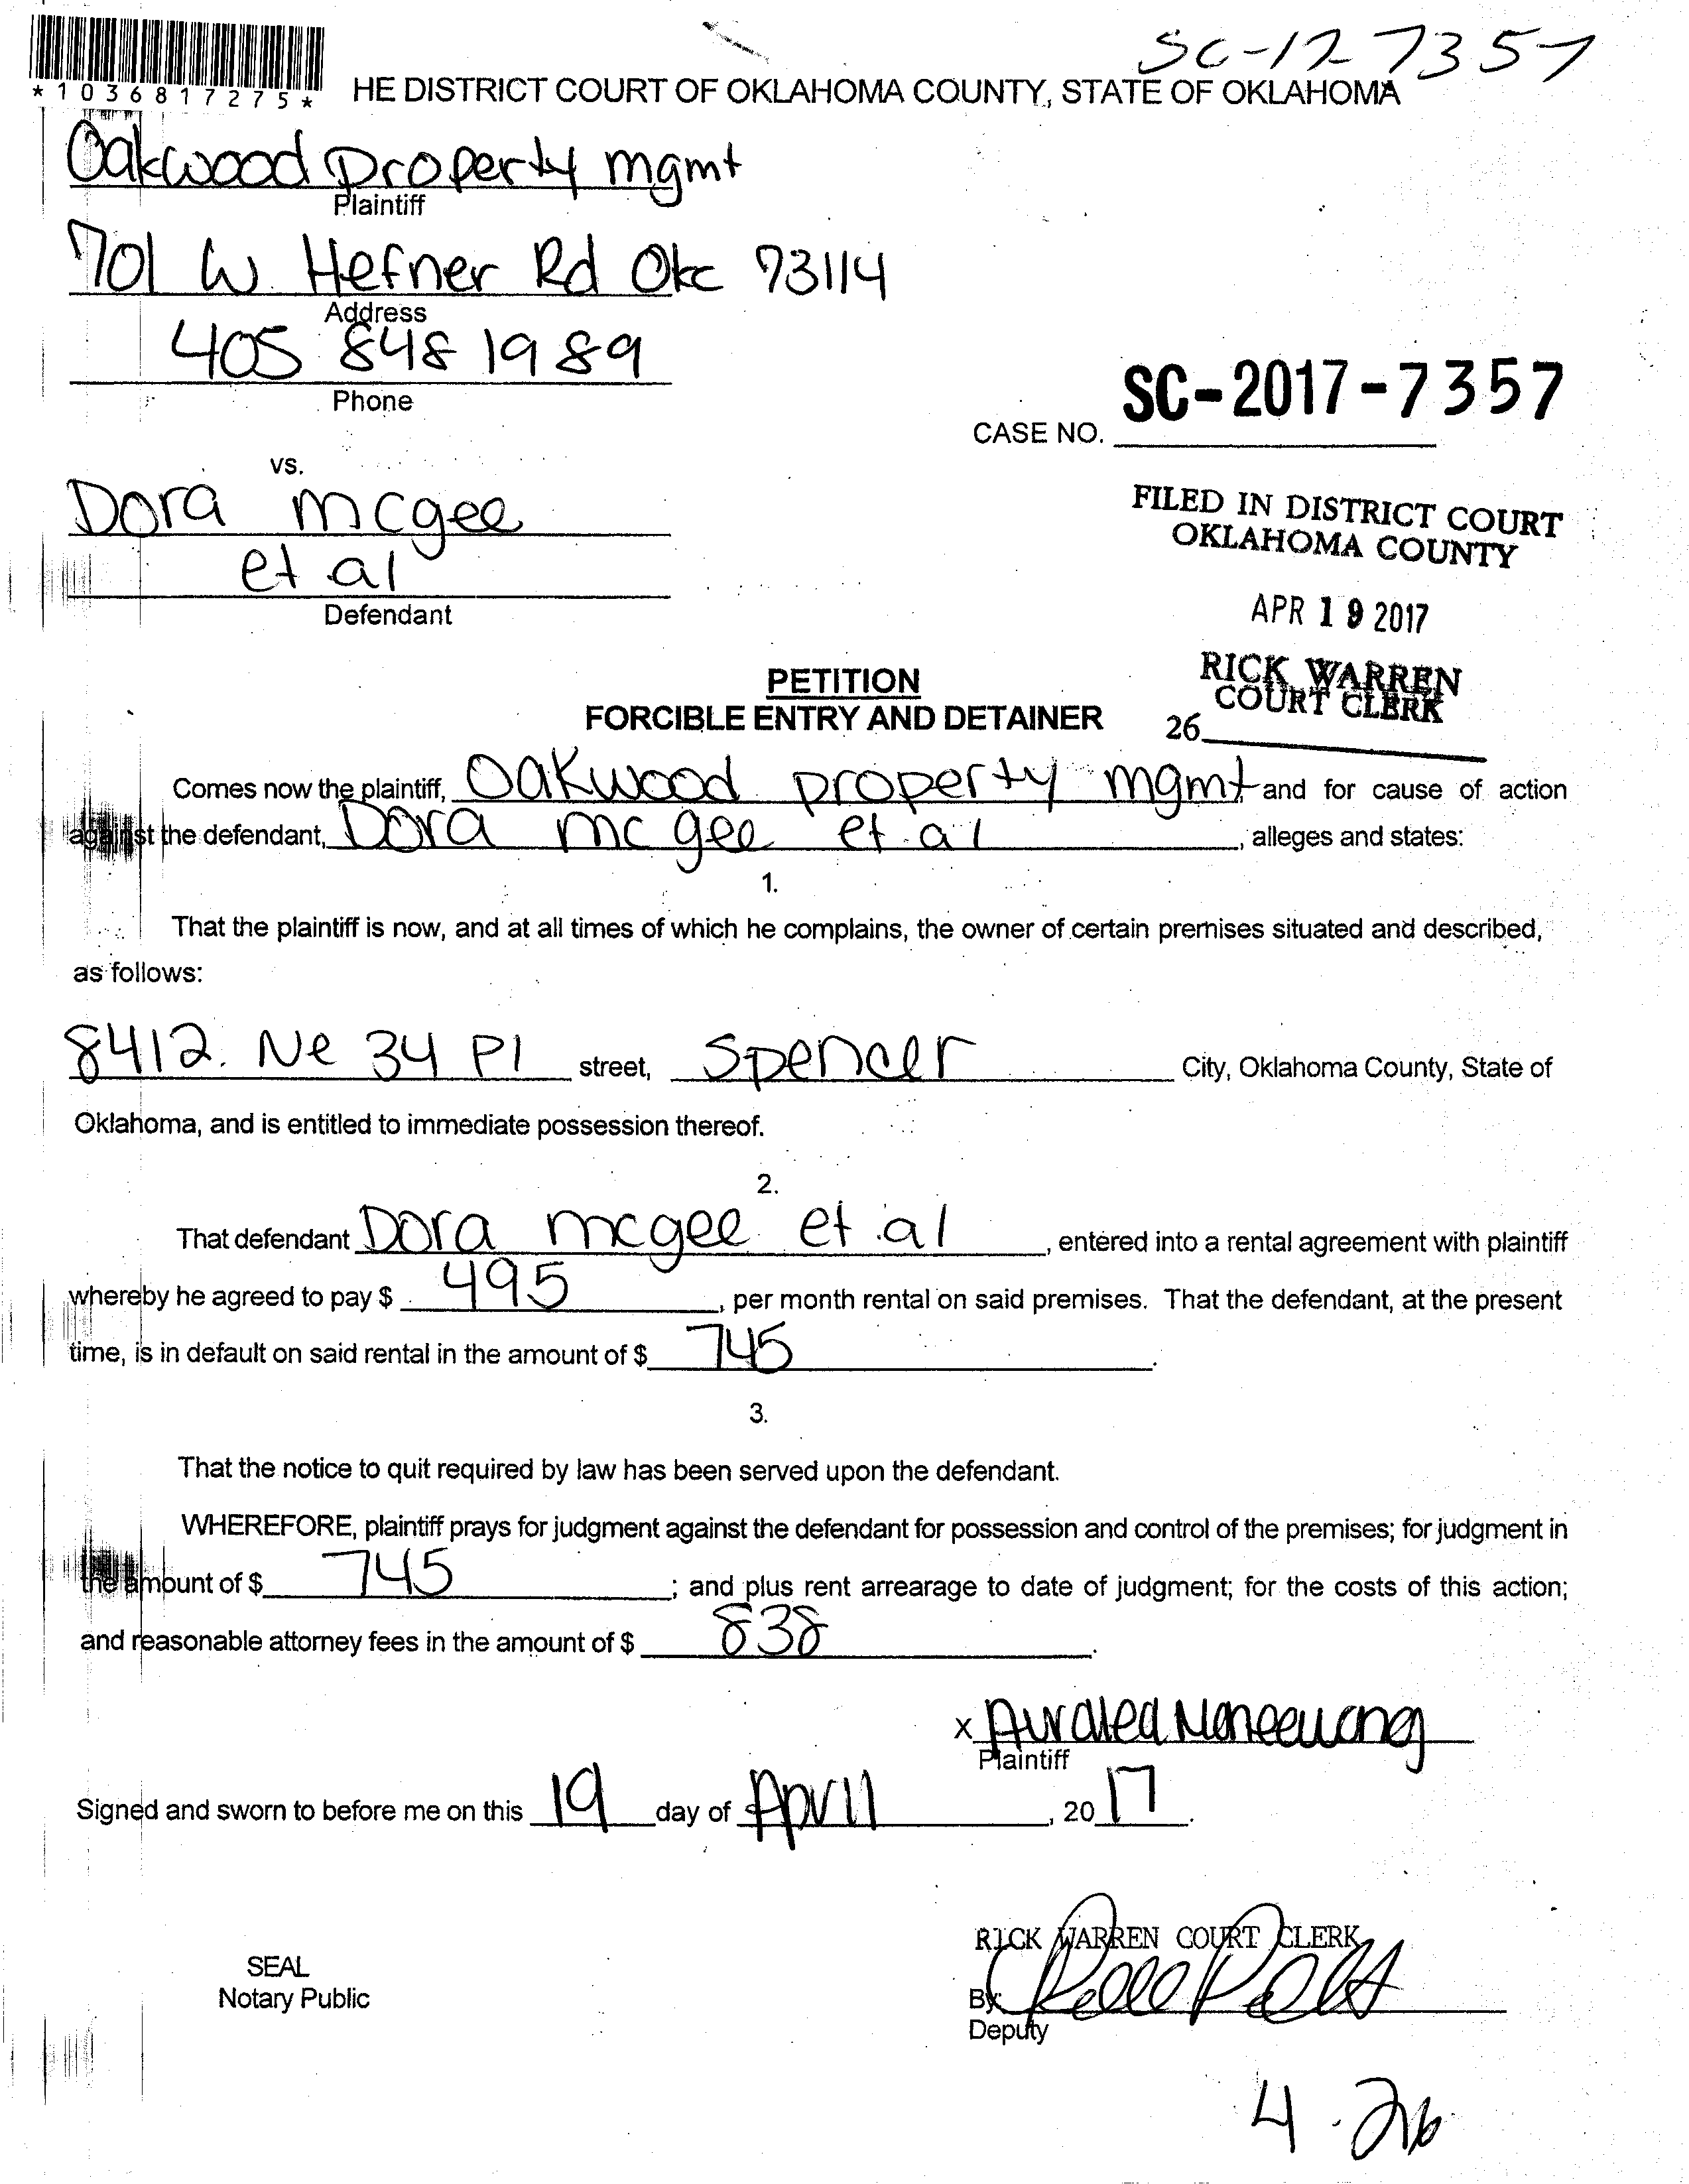 SC-17-7357
*1036817275*
HE DISTRICT COURT OF OKLAHOMA COUNTY, STATE OF OKLAHOMA
Oakwood Property mgmt
Plaintiff
701 W. Hefner Rd Okc 73114
Address
405 848 1989
Phone
SC-2017-7357
CASE NO.
vs.
Dora mcgee
et al
Defendant
FILED IN DISTRICT COURT
OKLAHOMA COUNTY
APR 19 2017
RICK WARREN
COURT CLERK
26
PETITION
FORCIBLE ENTRY AND DETAINER
Comes now the plaintiff, Oakwood property mgmt and for cause of action
against the defendant, Dora mcgee et al, alleges and states:
1.
That the plaintiff is now, and at all times of which he complains, the owner of certain premises situated and described,
as follows:
8412. Ne 34 Pl street, Spencer City, Oklahoma County, State of
Oklahoma, and is entitled to immediate possession thereof.
2.
That defendant Dora mcgee et al, entered into a rental agreement with plaintiff
whereby he agreed to pay $ 495, per month rental on said premises. That the defendant, at the present
time, is in default on said rental in the amount of $ 745.
3.
That the notice to quit required by law has been served upon the defendant.
WHEREFORE, plaintiff prays for judgment against the defendant for possession and control of the premises; for judgment in
the amount of $ 745; and plus rent arrearage to date of judgment; for the costs of this action;
and reasonable attorney fees in the amount of $ 838.
x
Plaintiff
Signed and sworn to before me on this 19 day of April, 20 17.
RICK WARREN COURT CLERK
SEAL
Notary Public
By:
Deputy
4-26